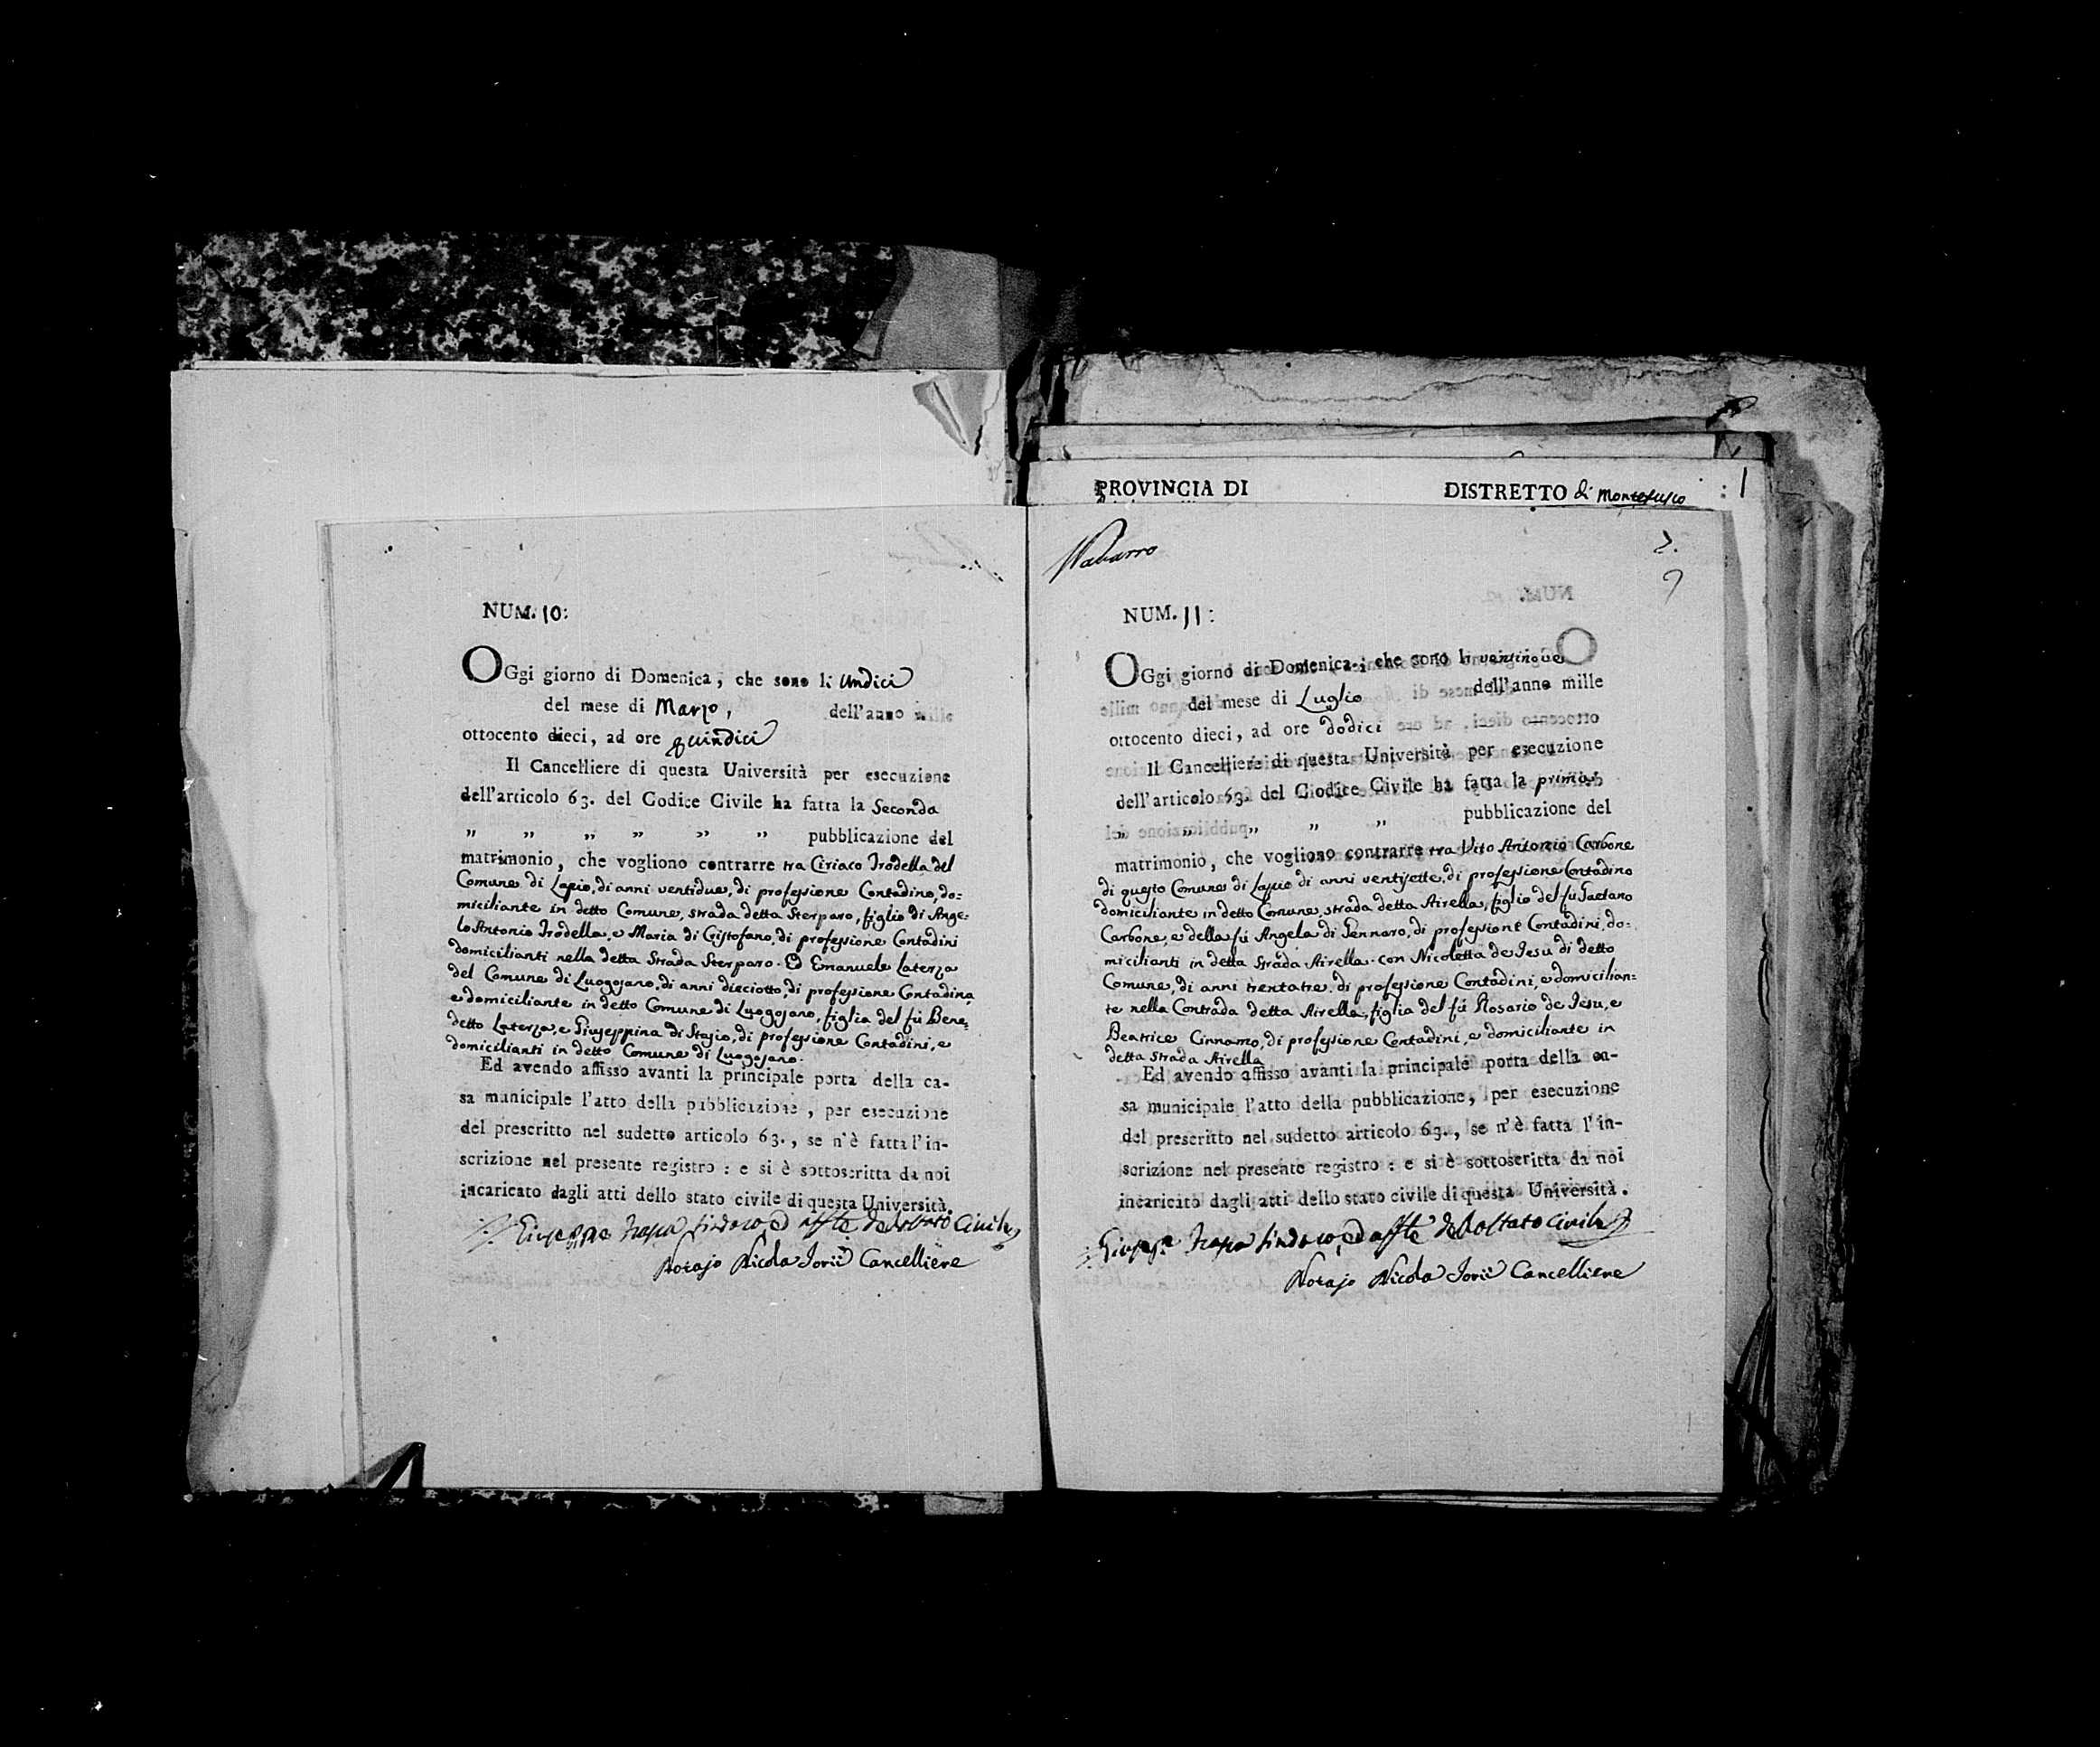 NUM. 10:
OGgi giorno di Domenica, che sono li undici
del mese di Marzo, dell'anno mille
ottocento dieci, ad ore quindici
Il Cancelliere di questa Università per esecuzione
dell'articolo 63. del Codice Civile ha fatta la Seconda
" " " " " " pubblicazione del
matrimonio, che vogliono contrarre tra Ciriaco Trodella del
Comune di Lapio, di anni ventidue, di professione Contadino, do=
miciliante in detto Comune, strada detta Sterparo, figlio di Ange=
lo Antonio Trodella, e Maria di Cristofano, di professione Contadini
domicilianti nella detta Strada Sterparo. Ed Emanuele Laterza
del Comune di Luogosano, di anni dieciotto, di professione Contadina,
e domiciliante in detto Comune di Luogosano, figlia del fù Bene=
detto Laterza, e Giuseppina di Stasio, di professione Contadini, e
domicilianti in detto Comune di Luogosano.
Ed avendo affisso avanti la principale porta della ca-
sa municipale l'atto della pubblicazione, per esecuzione
del prescritto nel sudetto articolo 63., se n'è fatta l'in-
scrizione nel presente registro: e si è sottoscritta da noi
incaricato dagli atti dello stato civile di questa Università.
Giuseppe Trapa Sindaco, ed uffle dello stato Civile
Notajo Nicola Iorii Cancelliere
PROVINCIA DI DISTRETTO di Montefusco : 1
Navarro 2.
9
NUM. 11:
OGgi giorno di Domenica, che sono li venticinque
del mese di Luglio dell'anno mille
ottocento dieci, ad ore dodici
Il Cancelliere di questa Università per esecuzione
dell'articolo 63. del Codice Civile ha fatta la prima
" " " " " pubblicazione del
matrimonio, che vogliono contrarre tra Vito Antonio Carbone
di questo Comune di Lapio di anni ventisette, di professione Contadino
domiciliante in detto Comune, strada detta Airella, figlio del fu Gaetano
Carbone, e della fù Angela di Gennaro, di professione Contadini, do=
micilianti in detta Strada Airella. con Nicoletta de Iesu di detto
Comune, di anni trentatre, di professione Contadini, e domicilian=
te nella Contrada detta Airella, figlia del fù Rosario de Iesu, e
Beatrice Cinnamo, di professione Contadini, e domiciliante in
detta Strada Airella
Ed avendo affisso avanti la principale porta della ca-
sa municipale l'atto della pubblicazione, per esecuzione
del prescritto nel sudetto articolo 63., se n'è fatta l'in-
scrizione nel presente registro: e si è sottoscritta da noi
incaricato dagli atti dello stato civile di questa Università.
Giusepe Trapa Sindaco, ed uffle dello stato civile
Notajo Nicola Iorii Cancelliere